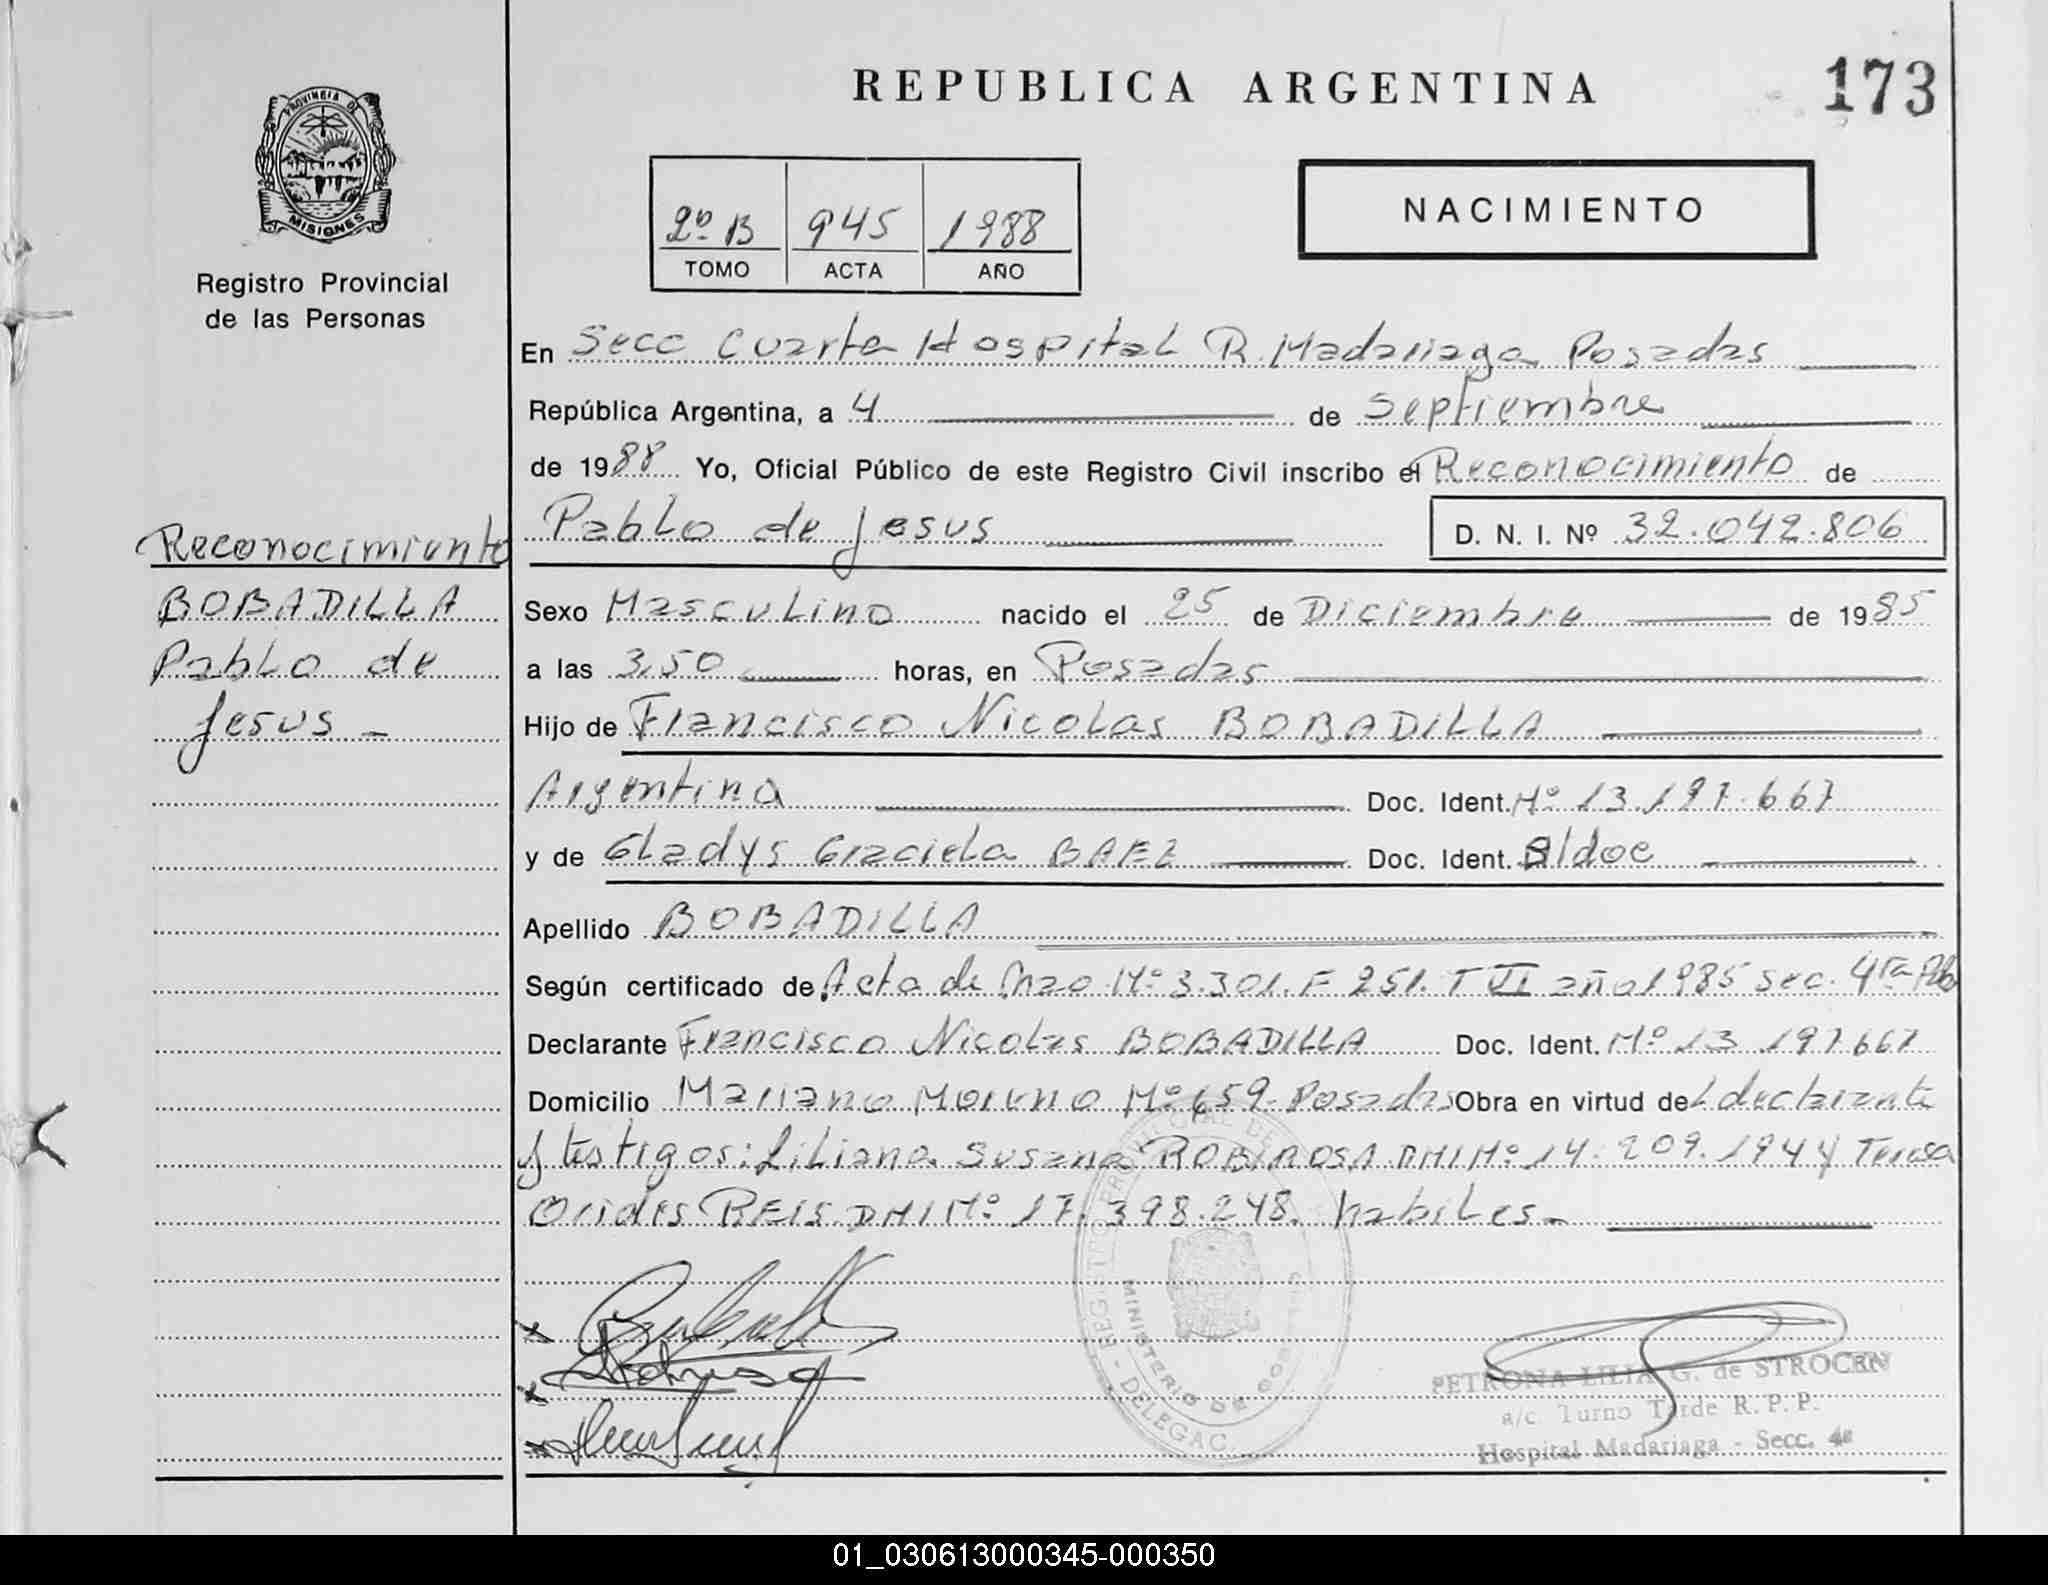 REPUBLICA ARGENTINA
173
PROVINCIA DE
MISIONES
Registro Provincial
de las Personas
2º B 945 1988
TOMO ACTA AÑO
NACIMIENTO
En Secc Cuarta Hospital R. Madariaga Posadas
República Argentina, a 4 de Septiembre
de 1988 Yo, Oficial Público de este Registro Civil inscribo el Reconocimiento de
Pablo de Jesus D. N. I. Nº 32.042.806
Reconocimiento
BOBADILLA
Pablo de
Jesus -
Sexo Masculino nacido el 25 de Diciembre de 1985
a las 3,50 horas, en Posadas
Hijo de Francisco Nicolas BOBADILLA
Argentina Doc. Ident. Nº 13.197.667
y de Gladys Graciela BAEZ Doc. Ident. S/doc
Apellido BOBADILLA
Según certificado de Acta de Nº 3.301. F 251. T VI año 1985 sec. 4ta
Declarante Francisco Nicolas BOBADILLA Doc. Ident. Nº 13 197667
Domicilio Mariano Moreno Nº 659. Posadas Obra en virtud del declarante
y testigos: Liliana Susana ROBIROSA DNI Nº 14.209.194 y Teresa
Orides REIS. DNI Nº 17.398.248. habiles -
MINISTERIO DE GOBIERNO
DELEGAC.
PETRONA LILIA G. de STROCEN
a/c Turno Tarde R. P. P.
Hospital Madariaga - Secc. 4a
01_030613000345-000350